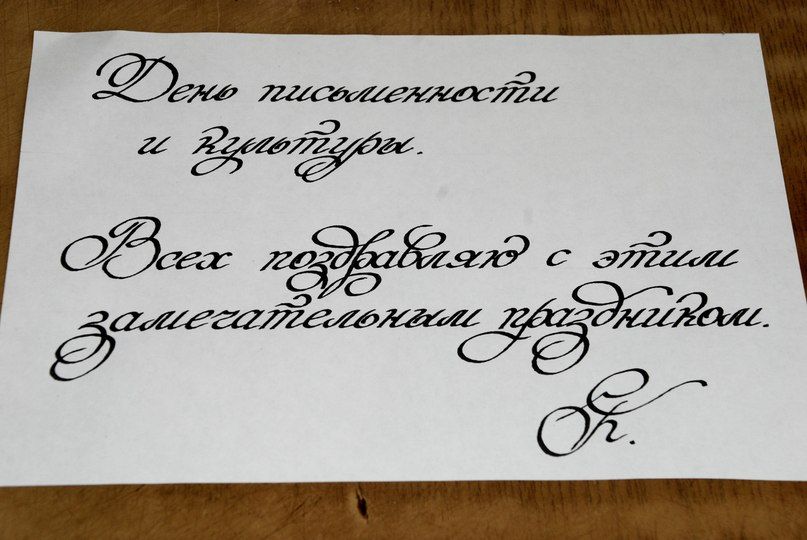 День письменности
и культуры.
Всех поздравляю с этим
замечательным праздником.
К.